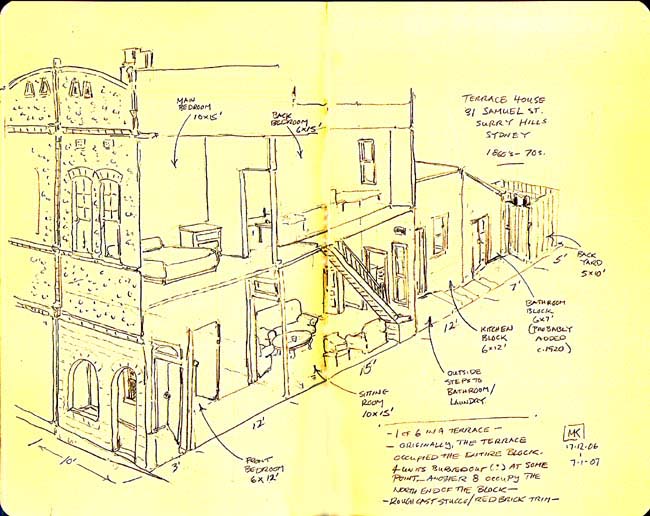 TERRACE HOUSE
81 SAMUEL ST.
SURRY HILLS
SYDNEY
1860's - 70s.
MAIN
BEDROOM
10x15'
BACK
BEDROOM
6x15'
BACK
YARD
5x10'
5'
7'
12'
15'
12'
3'
10'
BATHROOM
BLOCK
6x7'
(PROBABLY
ADDED
c.1920)
KITCHEN
BLOCK
6x12'
OUTSIDE
STEPS TO
BATHROOM/
LAUNDRY
SITTING
ROOM
10x15'
FRONT
BEDROOM
6x12'
- 1 OF 6 IN A TERRACE -
- ORIGINALLY, THE TERRACE
OCCUPIED THE ENTIRE BLOCK.
4 UNITS BURNED OUT (?) AT SOME
POINT - ANOTHER 8 OCCUPY THE
NORTH END OF THE BLOCK -
- ROUGHCAST STUCCO/RED BRICK TRIM -
MK
17.12.06
7-1-07